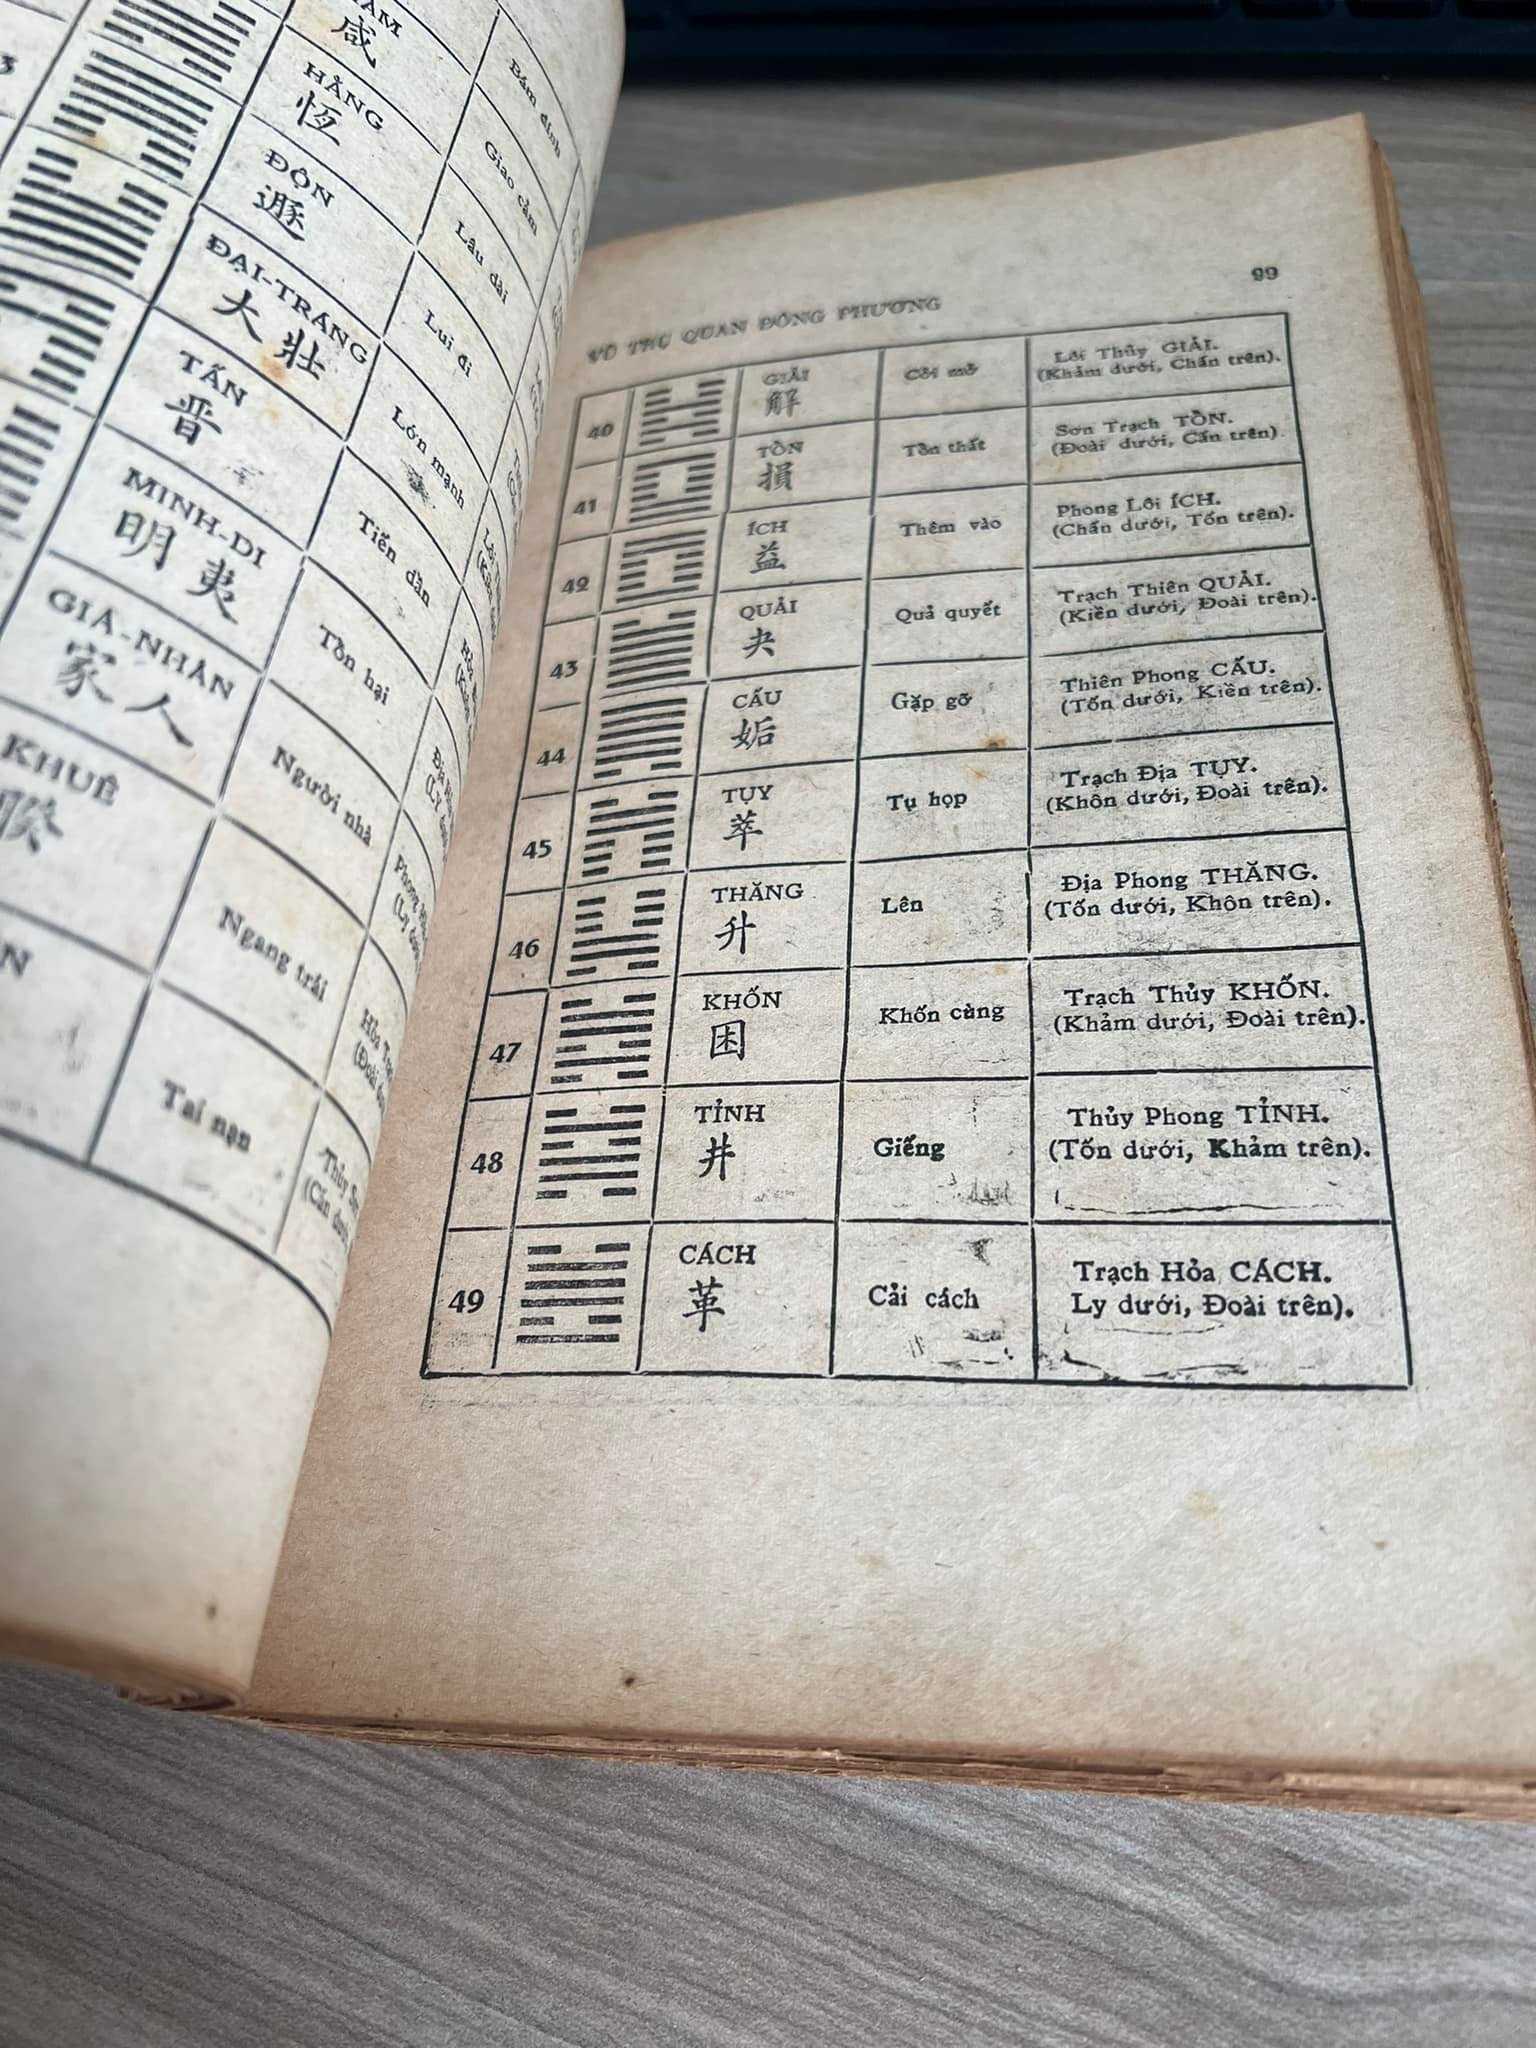 3
咸
Bám dính
HẰNG
恆
Giao cảm
ĐỘN
遯
Lâu dài
ĐẠI-TRÁNG
大壯
Lui đi
TẤN
晋
Lớn mạnh
MINH-DI
明夷
Tiến dần
GIA-NHÂN
家人
Tổn hại
KHUÊ
睽
Người nhà
Ngang trái
Tai nạn
VŨ TRỤ QUAN ĐÔNG PHƯƠNG
99
40
GIẢI
解
Cởi mở
Lôi Thủy GIẢI.
(Khảm dưới, Chấn trên).
41
TỔN
損
Tổn thất
Sơn Trạch TỔN.
(Đoài dưới, Cấn trên)
42
ÍCH
益
Thêm vào
Phong Lôi ÍCH.
(Chấn dưới, Tốn trên).
43
QUẢI
夬
Quả quyết
Trạch Thiên QUẢI.
(Kiền dưới, Đoài trên).
44
CẤU
姤
Gặp gỡ
Thiên Phong CẤU.
(Tốn dưới, Kiền trên).
45
TỤY
萃
Tụ họp
Trạch Địa TỤY.
(Khôn dưới, Đoài trên).
46
THĂNG
升
Lên
Địa Phong THĂNG.
(Tốn dưới, Khôn trên).
47
KHỐN
困
Khốn cùng
Trạch Thủy KHỐN.
(Khảm dưới, Đoài trên).
48
TỈNH
井
Giếng
Thủy Phong TỈNH.
(Tốn dưới, Khảm trên).
49
CÁCH
革
Cải cách
Trạch Hỏa CÁCH.
Ly dưới, Đoài trên).